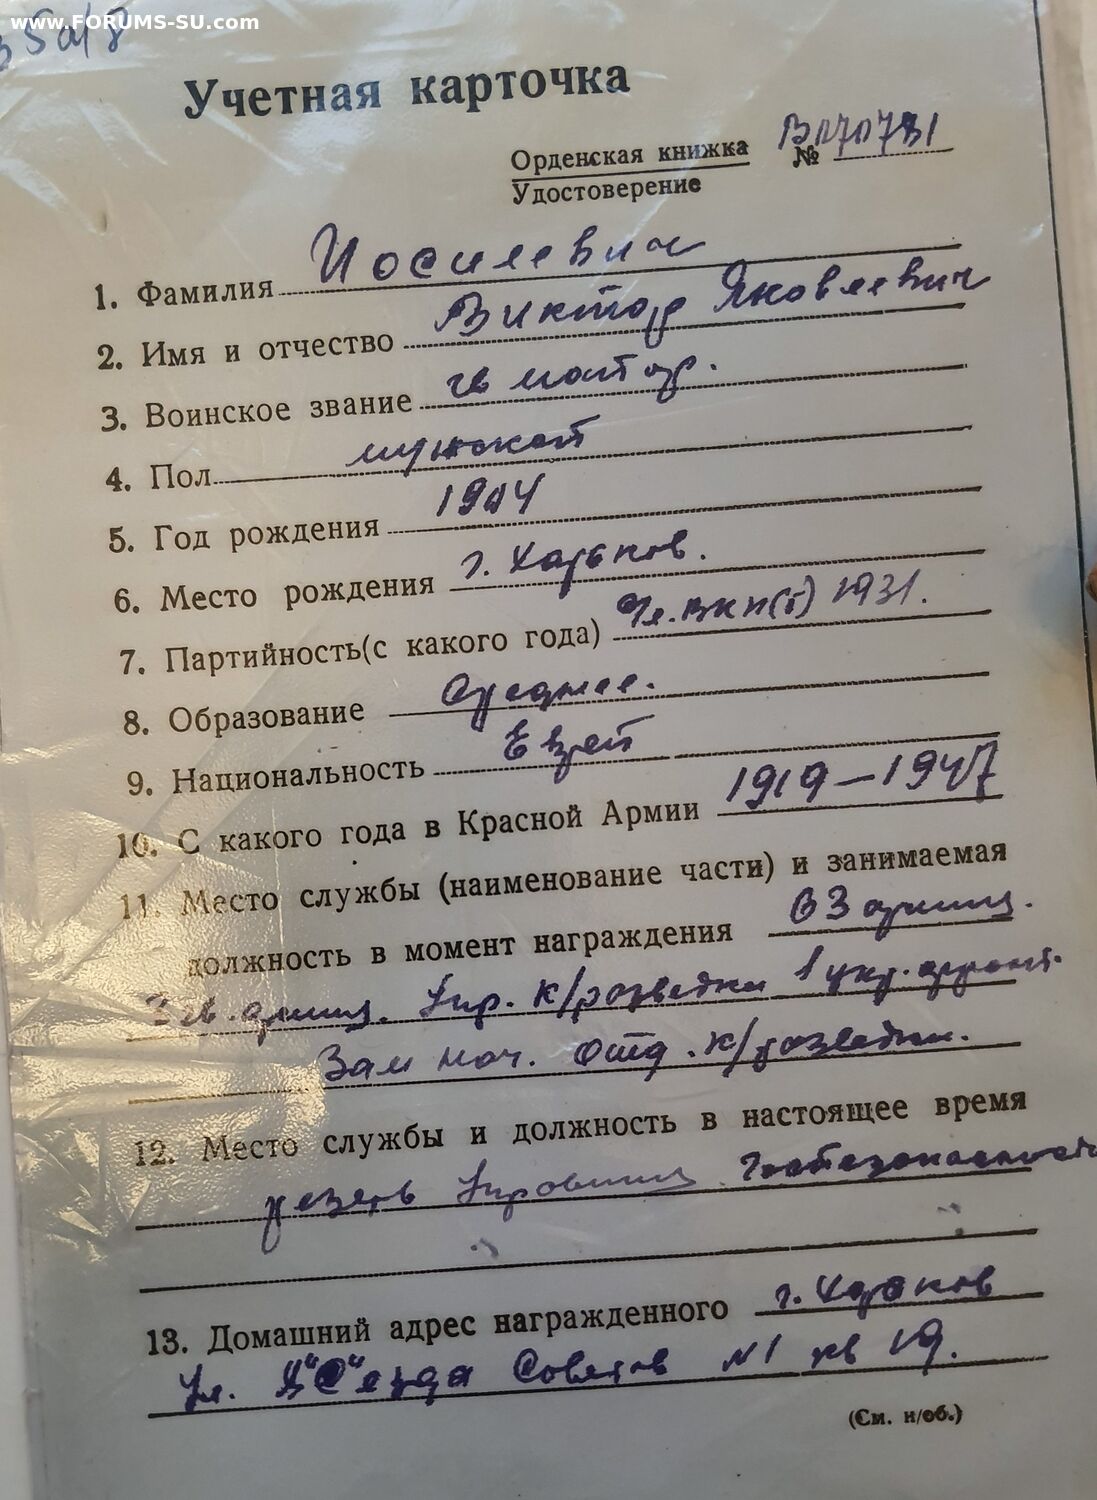 www.FORUMS-SU.com
Учетная карточка
Орденская книжка №
Удостоверение
1. Фамилия Иосилевич
2. Имя и отчество Виктор Яковлевич
3. Воинское звание гв майор.
4. Пол мужской
5. Год рождения 1904
6. Место рождения г. Харьков.
7. Партийность(с какого года) Чл. ВКП(б) 1931.
8. Образование Среднее.
9. Национальность Еврей
10. С какого года в Красной Армии 1919-1947
11. Место службы (наименование части) и занимаемая
должность в момент награждения
3 гв. Упр. к/разведки 1 укр. фронт.
Зам нач. отд. к/разведки.
12. Место службы и должность в настоящее время
резерв Госбезопасности
13. Домашний адрес награжденного г. Харьков
Ул. Съезда Советов №1 кв 19.
(См. н/об.)